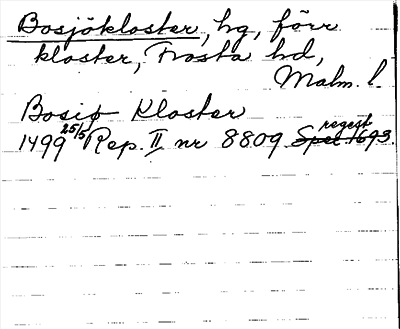 Bosjökloster, hg, förr
kloster, Frosta hd,
Malm. l.
Bosiø Kloster
1499 25/5 Rep. II nr 8809 regest